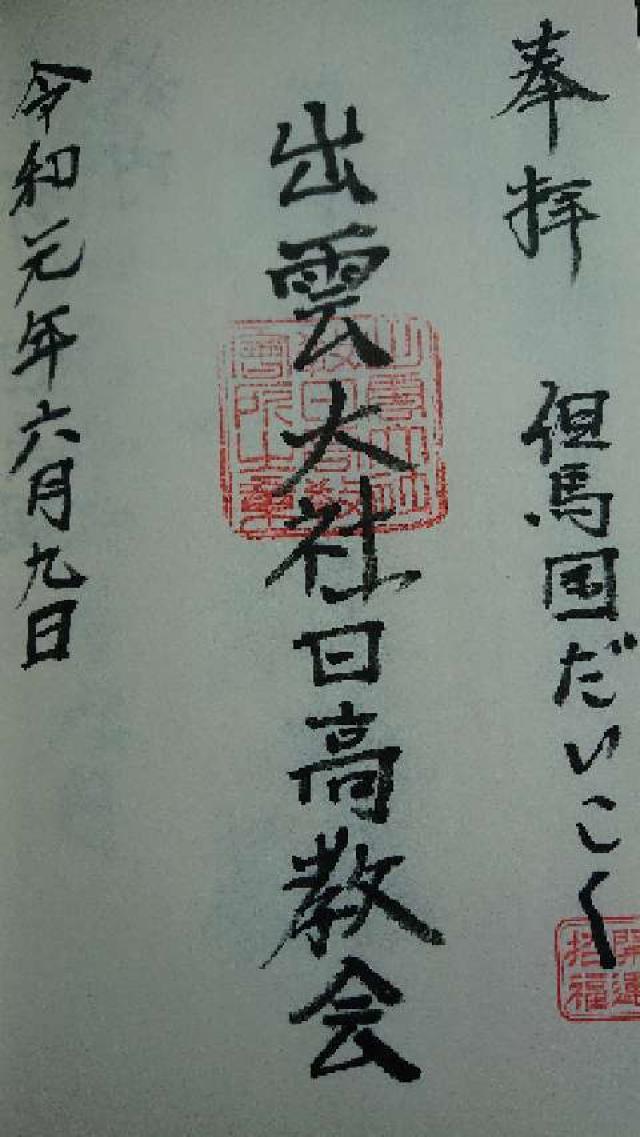 奉拝 但馬国だいこく
開運
招福
出雲大社日高教会
令和元年六月九日